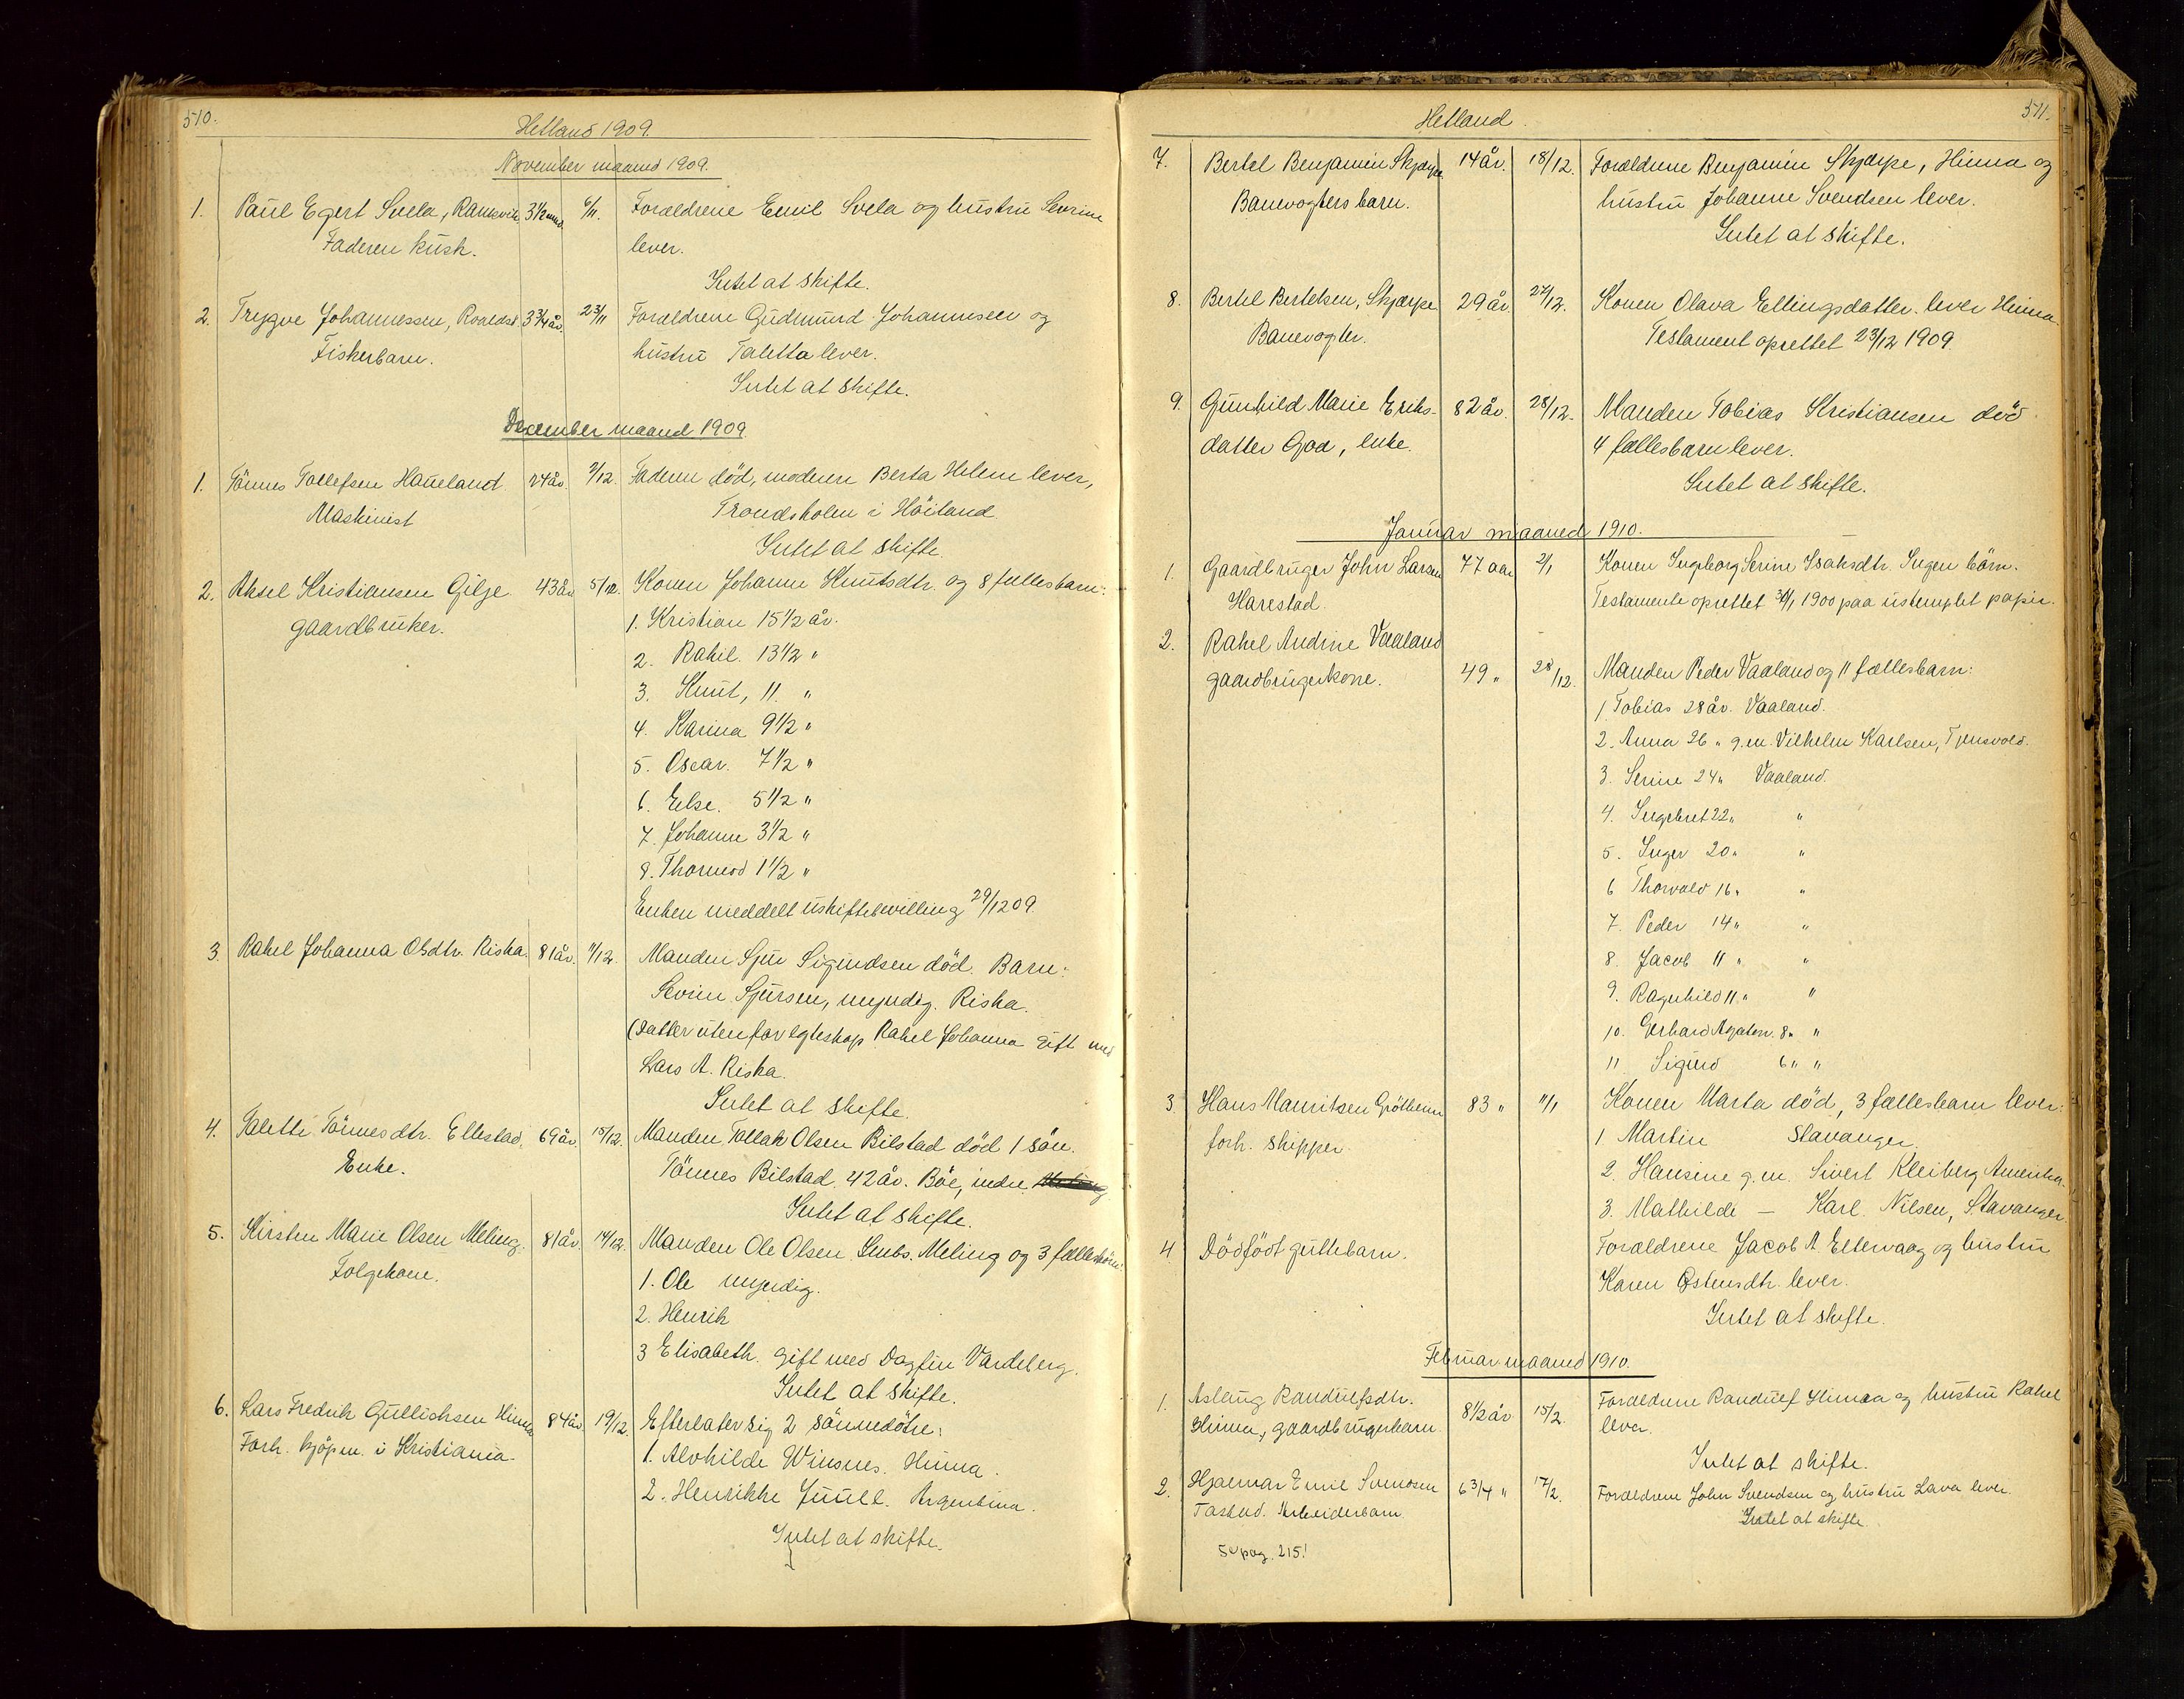 510.
Hetland 1909.
November maaned 1909.
1. Paul Egert Svela, 3 1/2 mnd. 6/11. Forældrene Emil Svela og hustru Sevrine
Faderen kusk. lever.
Intet at skifte.
2. Trygve Johannessen, Roaldsø. 3 3/4 år. 23/11 Forældrene Gudmund Johannesen og
Fiskerbarn. hustru Taletta lever.
Intet at skifte.
December maaned 1909.
1. Tönnes Tollefsen Haueland 24 år. 2/12. Faderen död, moderen Berta Helene lever,
Maskinist Trondsholen i Höiland.
Intet at skifte.
2. Aksel Kristiansen Gilje. 43 år 5/12. Konen Johanne Knutsdtr. og 8 fællesbarn:
gaardbruker. 1. Kristian 15 1/2 år.
2. Rakil. 13 1/2 "
3. Knut, 11. "
4. Karina 9 1/2 "
5. Oscar. 7 1/2 "
6. Else. 5 1/2 "
7. Johanne 3 1/2 "
8. Thormod 1 1/2 "
Enken meddelt uskiftebevilling 29/12 09.
3. Rakel Johanna Olsdtr. Riska. 81 år. 11/12. Manden Sjur Sigurdsen död. Barn:
Sevrin Sjursen, myndig. Riska.
(Datter utenfor egteskap Rakel Johanna gift med
Lars A. Riska.
Intet at skifte.
4. Taletti Tönnesdtr. Ellestad, 69 år. 15/12. Manden Tollak Olsen Bilstad död 1 sön.
Enke. Tönnes Bilstad. 42 år. Böe, indre
Intet at skifte.
5. Kirsten Marie Olsen Meling. 81 år. 14/12. Manden Ole Olsen Meling og 3 fællesbörn:
Folgekone. 1. Ole myndig.
2. Henrik
3 Elisabeth. gift med Dagfin Vardeberg.
Intet at skifte.
6. Lars Fredrik Gullichsen Hinna 84 år. 19/12. Efterlater sig 2 sönnedötre:
Forh. kjöpm. i Kristiania. 1. Alvhilde Winsnes. Hinna.
2. Henrikke Juull. Argentina.
Intet at skifte.
511.
Hetland.
7. Bertel Benjamin Skjærpe 14 år. 18/12. Forældrene Benjamin Skjærpe, Hinna og
Banevogters barn. hustru Johanne Svendsen lever.
Intet at skifte.
8. Bertel Bertelsen, Skjærpe 29 år. 27/12. Konen Olava Ellingsdatter. lever Hinna.
Banevogter. Testament oprettet 23/12 1909.
9. Gunhild Marie Eriks- 82 år. 28/12. Manden Tobias Kristiansen död
datter Goa, enke. 4 fællesbarn lever.
Intet at skifte.
Januar maaned 1910.
1. Gaardbruger John Larsen 77 aar 2/1 Konen Ingeborg Serine Isaksdtr. Ingen börn.
Harestad. Testamente oprettet 1900 paa ustemplet papir.
2. Rakel Andrine Vaaland
gaardbrugerkone. 49 " 28/12. Manden Peder Vaaland og 11 fællesbarn:
1. Tobias 28 år. Vaaland.
2. Anna 26 " g.m. Vilhelm Karlsen, Tjensvold.
3. Serine 24 " Vaaland.
4. Ingebret 22 " "
5. Inger 20 " "
6 Thorvald 16 " "
7. Peder 14 " "
8. Jacob 11 " "
9. Ragnhild 11 " "
10. Gerhard Agaton. 8 " "
11. Sigurd 6 " "
3. Hans Mauritsen Grötheim 83 " 11/1 Konen Marta död, 3 fællesbarn lever:
forh. skipper. 1 Martin Stavanger.
2. Hansine g.m. Sivert Kleiberg Amerika.
3. Mathilde — Karl Nilsen, Stavanger.
4. Dödfödt guttebarn. Forældrene Jacob A. Eltervaag og hustru
Karen Östensdtr. lever.
Intet at skifte.
Februar maaned 1910.
1. Aslaug Randulfsdtr. 8 1/2 år 15/2. Forældrene Randulf Hinna og hustru Rakel
Hinna, gaardbrugerbarn. lever.
Intet at skifte.
2. Hjalmar Emil Svendsen 6 3/4 " 17/2. Forældrene John Svendsen og hustru Lava lever.
Tastad. Arbeiderbarn. Intet at skifte.
Se pag. 215!